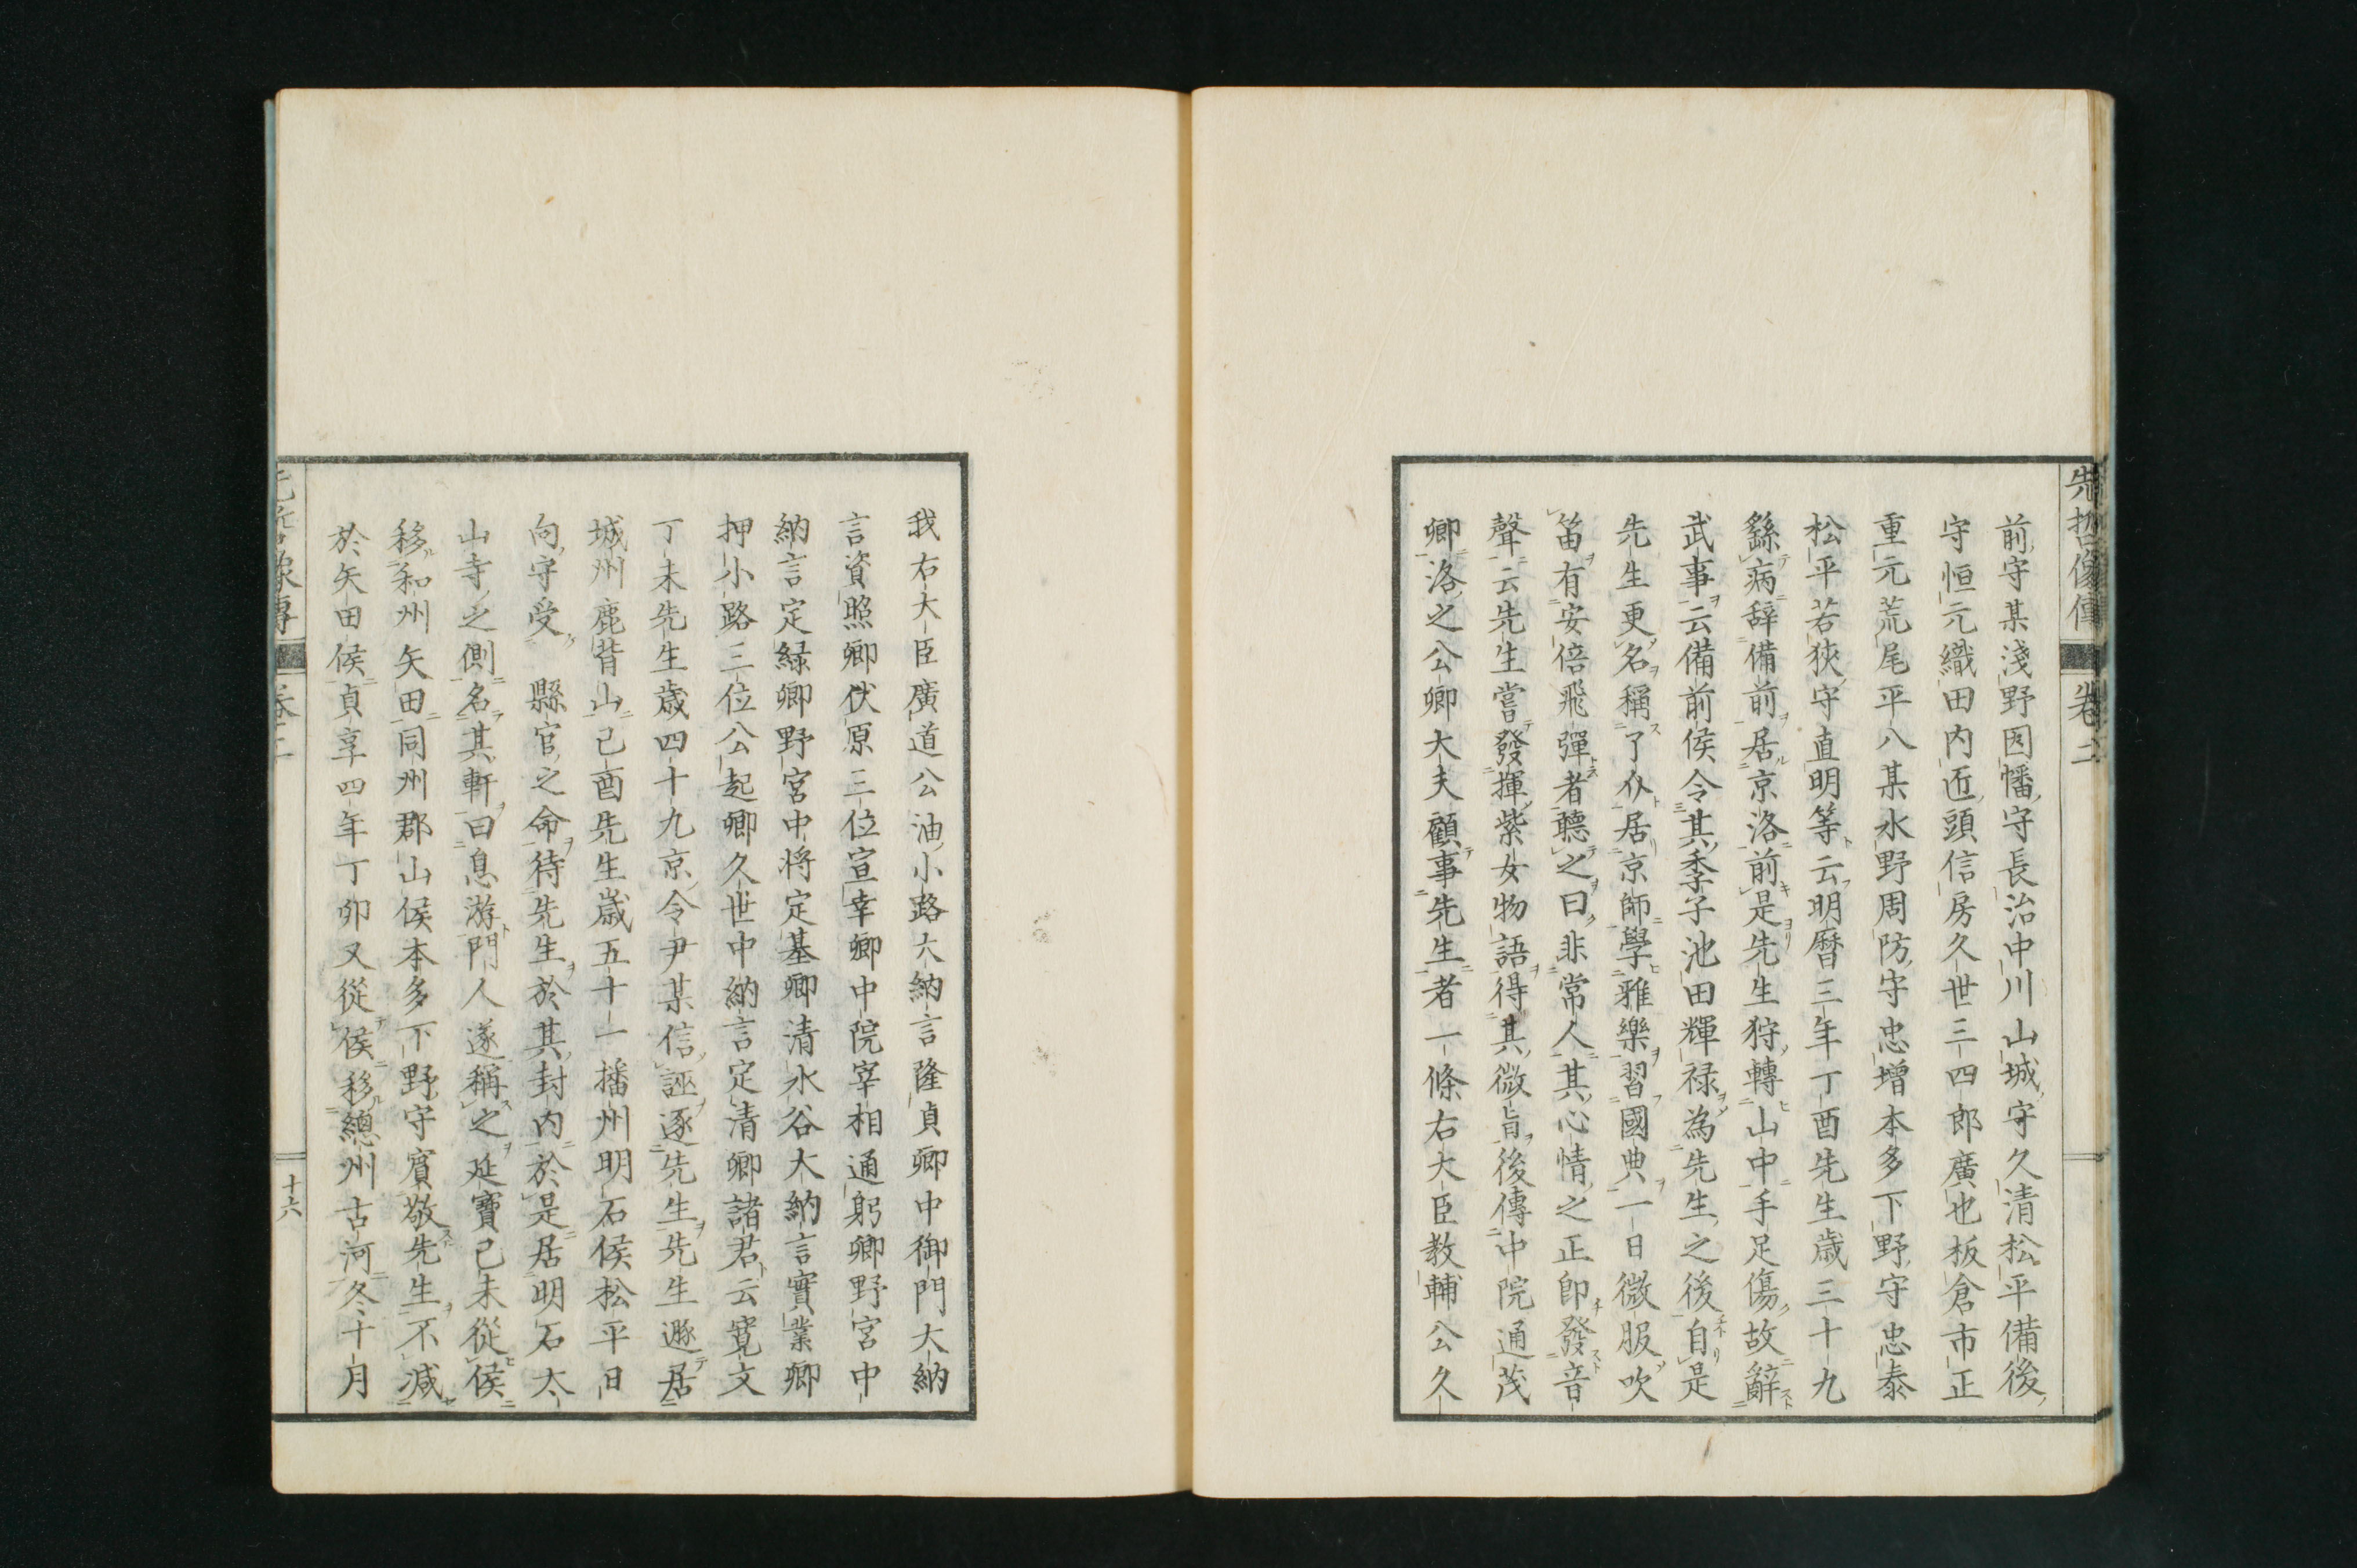 先哲像傳 卷二
前守某淺野因幡守長治中川山城守久清松平備後
守恒元織田内匠頭信房久世三四郎廣也板倉市正
重元荒尾平八某水野周防守忠增本多下野守忠泰
松平若狹守直明等云明曆三年丁酉先生歲三十九
繇病辭備前居京洛前是先生狩轉山中手足傷故辭
武事云備前侯令其季子池田輝祿為先生之後自是
先生更名稱了介居京師學雅樂習國典一日微服吹
笛有安倍飛彈者聽之曰非常人其心情之正即發音
聲云先生嘗發揮紫女物語得其微旨後傳中院通茂
卿洛之公卿大夫顧事先生者一條右大臣教輔公久
我右大臣廣道公油小路大納言隆貞卿中御門大納
言資照卿伏原三位宣幸卿中院宰相通躬卿野宮中
納言定緑卿野宮中将定基卿清水谷大納言實業卿
押小路三位公起卿久世中納言定清卿諸君云寛文
丁未先生歲四十九京令尹某信誣逐先生先生遯居
城州鹿背山己酉先生歲五十一播州明石侯松平日
向守受縣官之命待先生於其封内於是居明石太
山寺之側名其軒曰息游門人遂稱之延寶己未從侯
移和州矢田同州郡山侯本多下野守賓敬先生不減
於矢田侯貞享四年丁卯又從侯移總州古河冬十月
先哲像傳 卷二 十六